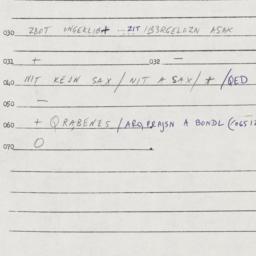 030 ZBOT UNGEKLIBT ZIT/BERGELOZN ASAK
031 + 032 —
040 NIT KEJN SAX / NIT A SAX / + /QED
050 —
060 + QRABENES / ARQPRAJSN A BONDL (
070 O